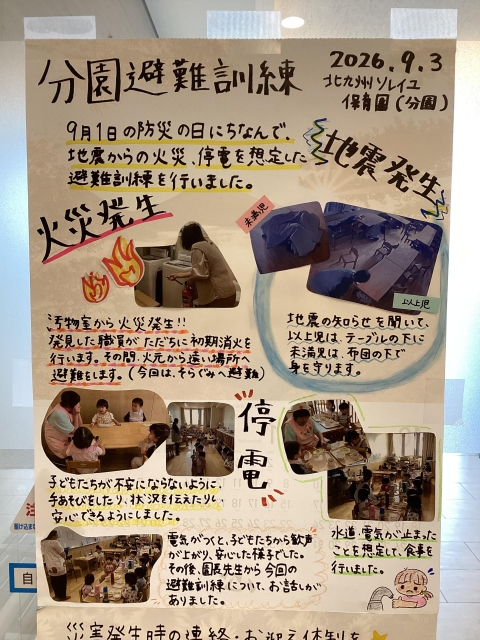 分園避難訓練
2026.9.3
北九州ソレイユ
保育園(分園)
9月1日の防災の日にちなんで、
地震からの火災、停電を想定した
避難訓練を行いました。
地震発生
未満児
以上児
地震の知らせを聞いて、
以上児は、テーブルの下に
未満児は、布団の下で
身を守ります。
火災発生
汚物室から火災発生!!
発見した職員がただちに初期消火を
行います。その間、火元から遠い場所へ
避難をします。(今回は、そらぐみへ避難)
停電
子どもたちが不安にならないように、
手あそびをしたり、状況を伝えたりし、
安心できるようにしました。
電気がつくと、子どもたちから歓声
が上がり、安心した様子でした。
その後、園長先生から今回の
避難訓練について、お話しが
ありました。
水道、電気が止まった
ことを想定して、食事を
行いました。
自
災害発生時の連絡・お迎え体制を